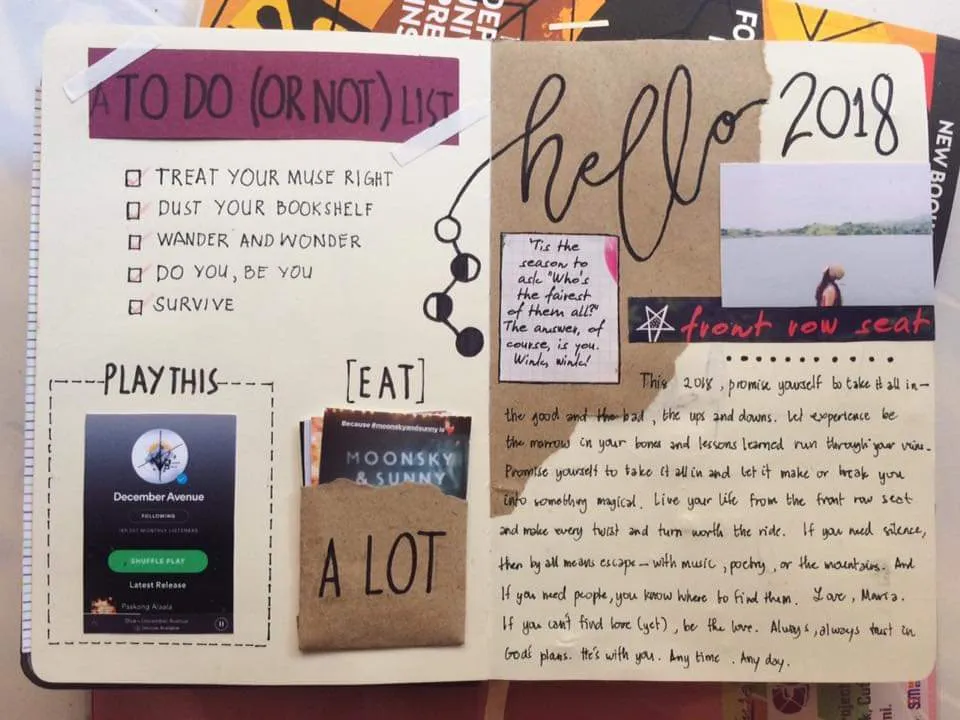 A TO DO (OR NOT) LIST
TREAT YOUR MUSE RIGHT
DUST YOUR BOOKSHELF
WANDER AND WONDER
DO YOU, BE YOU
SURVIVE
PLAY THIS
December Avenue
FOLLOWING
MONTHLY LISTENERS
SHUFFLE PLAY
Latest Release
Paakong Alaala
Dive - December Avenue
Devices Available
[EAT]
Because #moonskyandsunny is
MOONSKY
& SUNNY
A LOT
hello 2018
'Tis the
season to
ask "Who's
the fairest
of them all?"
The answer, of
course, is you.
Wink, wink!
front row seat
This 2018, promise yourself to take it all in—
the good and the bad, the ups and downs. Let experience be
the marrow in your bones and lessons learned run through your veins.
Promise yourself to take it all in and let it make or break you
into something magical. Live your life from the front row seat
and make every twist and turn worth the ride. If you need silence,
then by all means escape — with music, poetry, or the mountains. And
If you need people, you know where to find them. Love, Marsa.
If you can't find love (yet), be the love. Always, always trust in
God's plans. He's with you. Any time. Any day.
NEW BOOK
FO